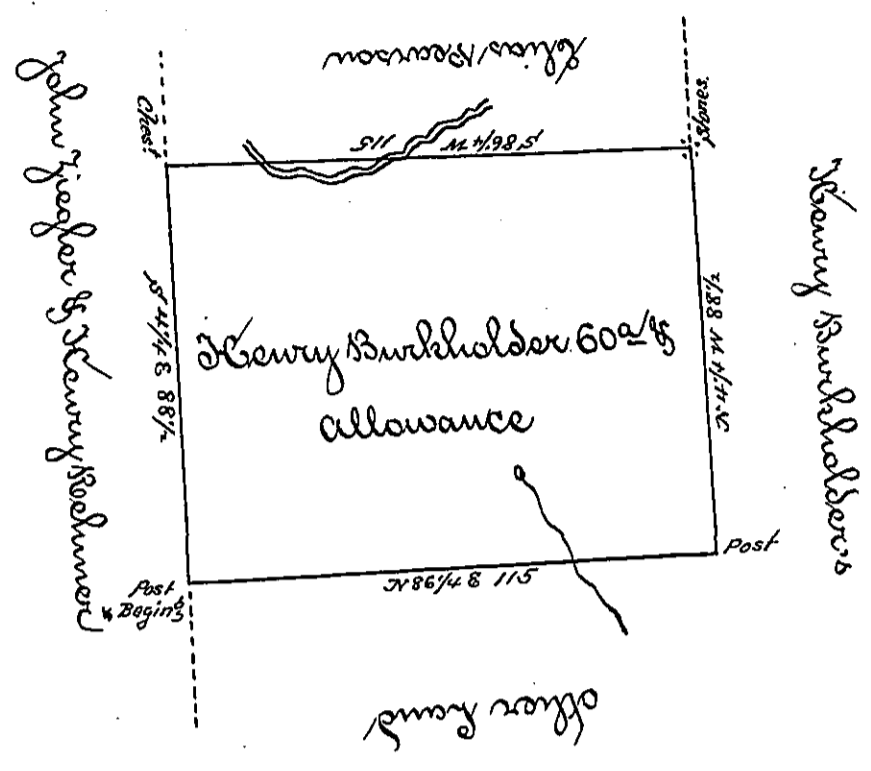 Elias Pearson
Chest
Stones.
S 86¼ W 115
John Ziegler & Henry Rechner
S 4¼ E 88½
Henry Burkholder 60a &
allowance
N 4¼ W 88½
Henry Burkholder's
Post
N 86¼ E 115
Post
& Begin'g
other Land